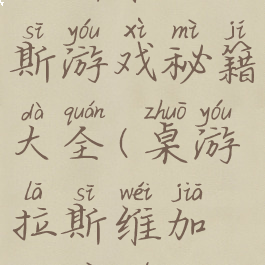 sī yóu xì mì jí
斯游戏秘籍
dà quán zhuō yóu
大全(桌游
lā sī wéi jiā
拉斯维加